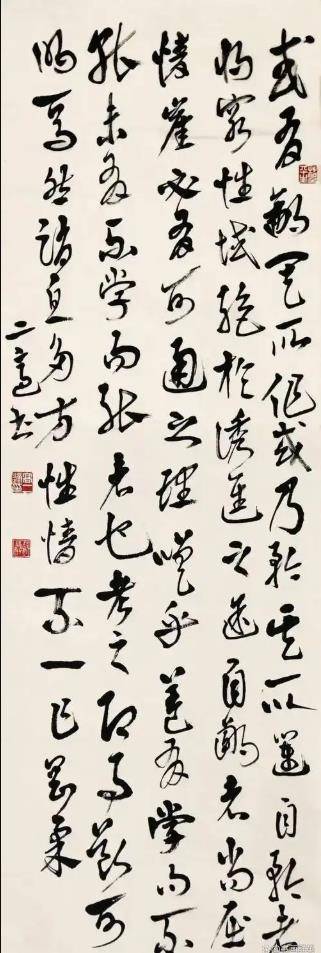 或有鄙其所作或乃矜其所運自矜者
將窮性域絕於誘進之途自鄙者尚屈
情涯必有可通之理嗟乎蓋有學而不
能未有不學而能者也考之即事斷可
明焉然消息多方性情不一乍剛柔
二適書